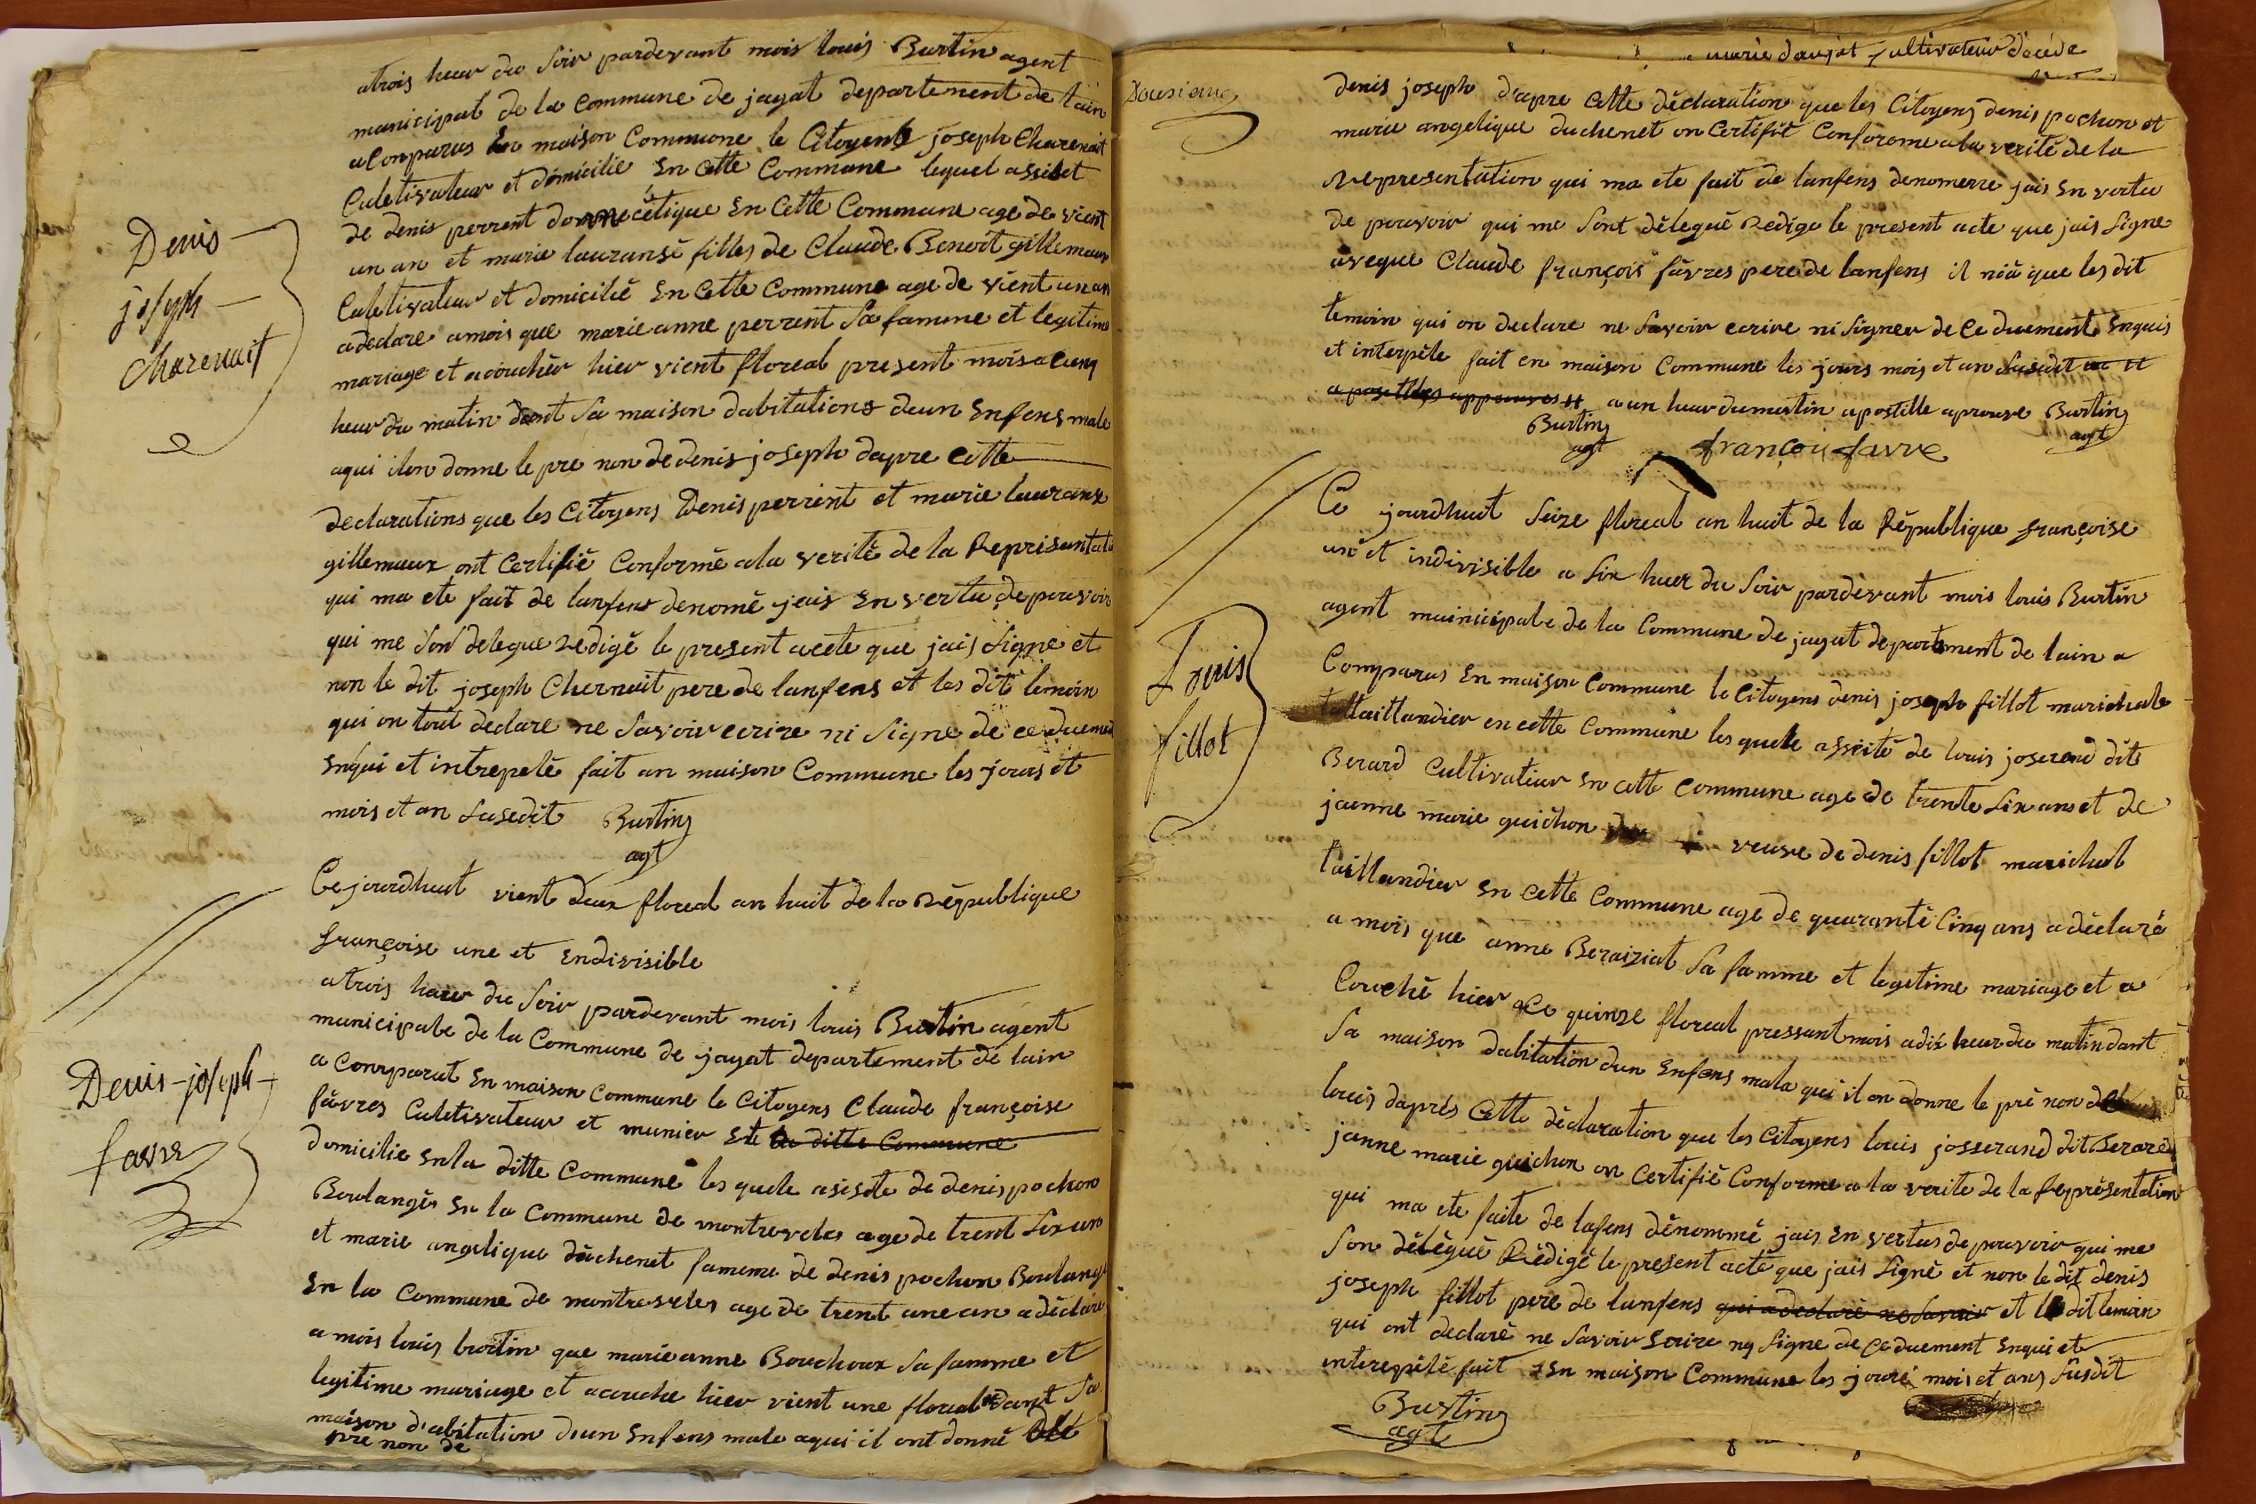 atrois heur du soir pardevant mois louis Burtin agent
municipal de la Commune de jayat departement de lain
aConparus En maison Commune le Citoyent joseph Charenait
Culetivateur et domicilie En cette Commune lequel assistet
de denis perrent domecétique En Cette Commune age de vient
un an et marie lauransé filles de Claude Benoit gillemaux
Culetivateur et domicilié En Cette Commune age de vient un an
adeclare amois que marie anne perrent Sa famme et legitime
mariage et acouchér hier vient floreal present mois a Cinq
heur du matin dant Sa maison dabitations dun Enfens male
aqui ilon donne le pre non de denis joseph dapre cette
declarations que les Citoyens Denis perrent et marie lauranse
gillemaux ont Certifié Conformé ala verité de la Represantati
qui ma ete fait de lanfens denomé jais En vertu de pouvoir
qui me Son delegue redigé le present acete que jais Signe et
non le dit joseph Chernait pere de lanfens et les dit temoin
qui on tout declare ne Savoir ecrire ni Signe de ce duement
Enqui et intrepelé fait an maison Commune les jours et
mois et an Susedit Burtin
agt
Denis
joseph
Charenait
Ce jourdhuit vient deux floreal an huit de la République
françoise une et Endivisible
atrois heur du Soir pardevant mois louis Burtin agent
municipale de la Commune de jayat departement de lain
a Comparut En maison Commune le Citoyens Claude françoise
fâvres Culetivateur et munier Et la ditte Commune
domicilie En la ditte Commune les quele asisete de denis pochon
Boulangér En la Commune de montrevelles age de trent Six an
et marie angelique duchenet fameme de denis pochon Boulang
En la Commune de montrevelles age de trent une an a déclaré
a mois louis burtin que marie anne Bouchoux Sa famme et
legitime mariage et acouche hier vient une floreal dant Sa
maison dabitation d'un Enfens male aqui il ont donné
pre non de
Denis-joseph
favre
marie daujat cultivateur décéde
denis joseph d'apre Cette déclaration que les Citoyens denis pochon et
marie angelique duchenet on Certifit Conforome ala verité de la
Representation qui ma ete fait de lanfens denomerre jais En vertu
de pouvoir qui me Sont délegué Redige le present acte que jais Signe
aveque Claude françois fâvres pere de lanfens il nia que les dit
temoin qui on declare ne Savoir ecrire ni Signer de Ce duement Enquis
et interpéle fait en maison Commune les jours mois et an Susdit
apostilles approuves a un heur du matin apostille aprouve Burtin
Burtin agt
agt françoi favre
Ce jourdhuit Seize floreal an huit de la République françoise
un et indivisible a Six huer du Soir pardevant mois louis Burtin
agent mainicipale de la Commune de jayat departement de lain a
Comparus En maison Commune le Citoyens denis joseph fillot marichale
taillandier en cette Commune les quele assisté de louis joserand dite
Berard Cultivateur En cette Commune age de trente Six ans et de
jeanne marie guichon veuve de denis fillot marichal
taillandier En Cette Commune age de quaranté Cinq ans a déclaré
a mois que anne Beraiziat Sa famme et legitime mariage et a
Couché hier Le quinze floreal pressant mois adix heur du matin dant
Sa maison dabitation dun Enfens mala qui il on donne le pré non de
louis daprés Cette déclaration que les Citoyens louis josserand dit Berard
janne marie guichon on Certifié Conforme a la verite de la Représentation
qui ma ete faite de lafens dénommé jais En vertus de pouvoir qui me
Son délégué Rédigé le present acte que jais Signé et non le dit denis
joseph fillot pere de lanfens qui a declaré ne Savoir et le dit temoin
qui ont declaré ne Savoir Ecrire ny Signe de Ce duement Enqui et
interepélé fait En maison Commune les jours mois et ans Susdit
Burtin
agt
Louis
fillot